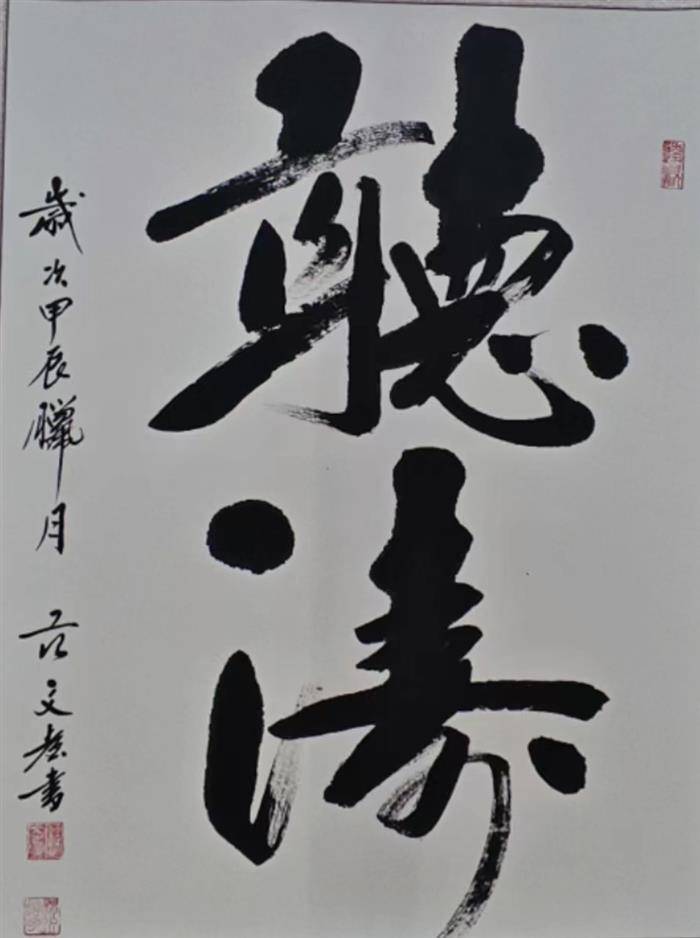 聽濤
歲次甲辰臘月 范文彦書